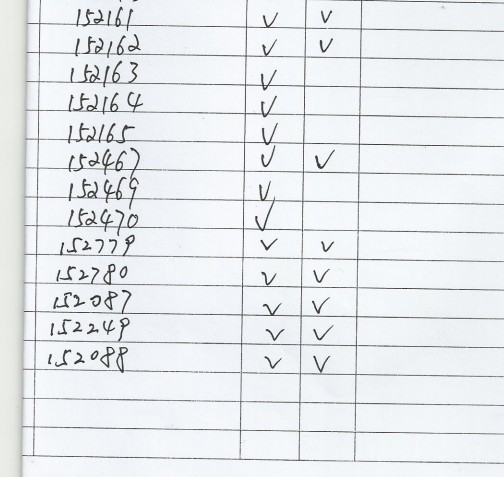 152161 ✓ ✓
152162 ✓ ✓
152163 ✓
152164 ✓
152165 ✓
152467 ✓ ✓
152469 ✓
152470 ✓
152779 ✓ ✓
152780 ✓ ✓
152087 ✓ ✓
152249 ✓ ✓
152088 ✓ ✓